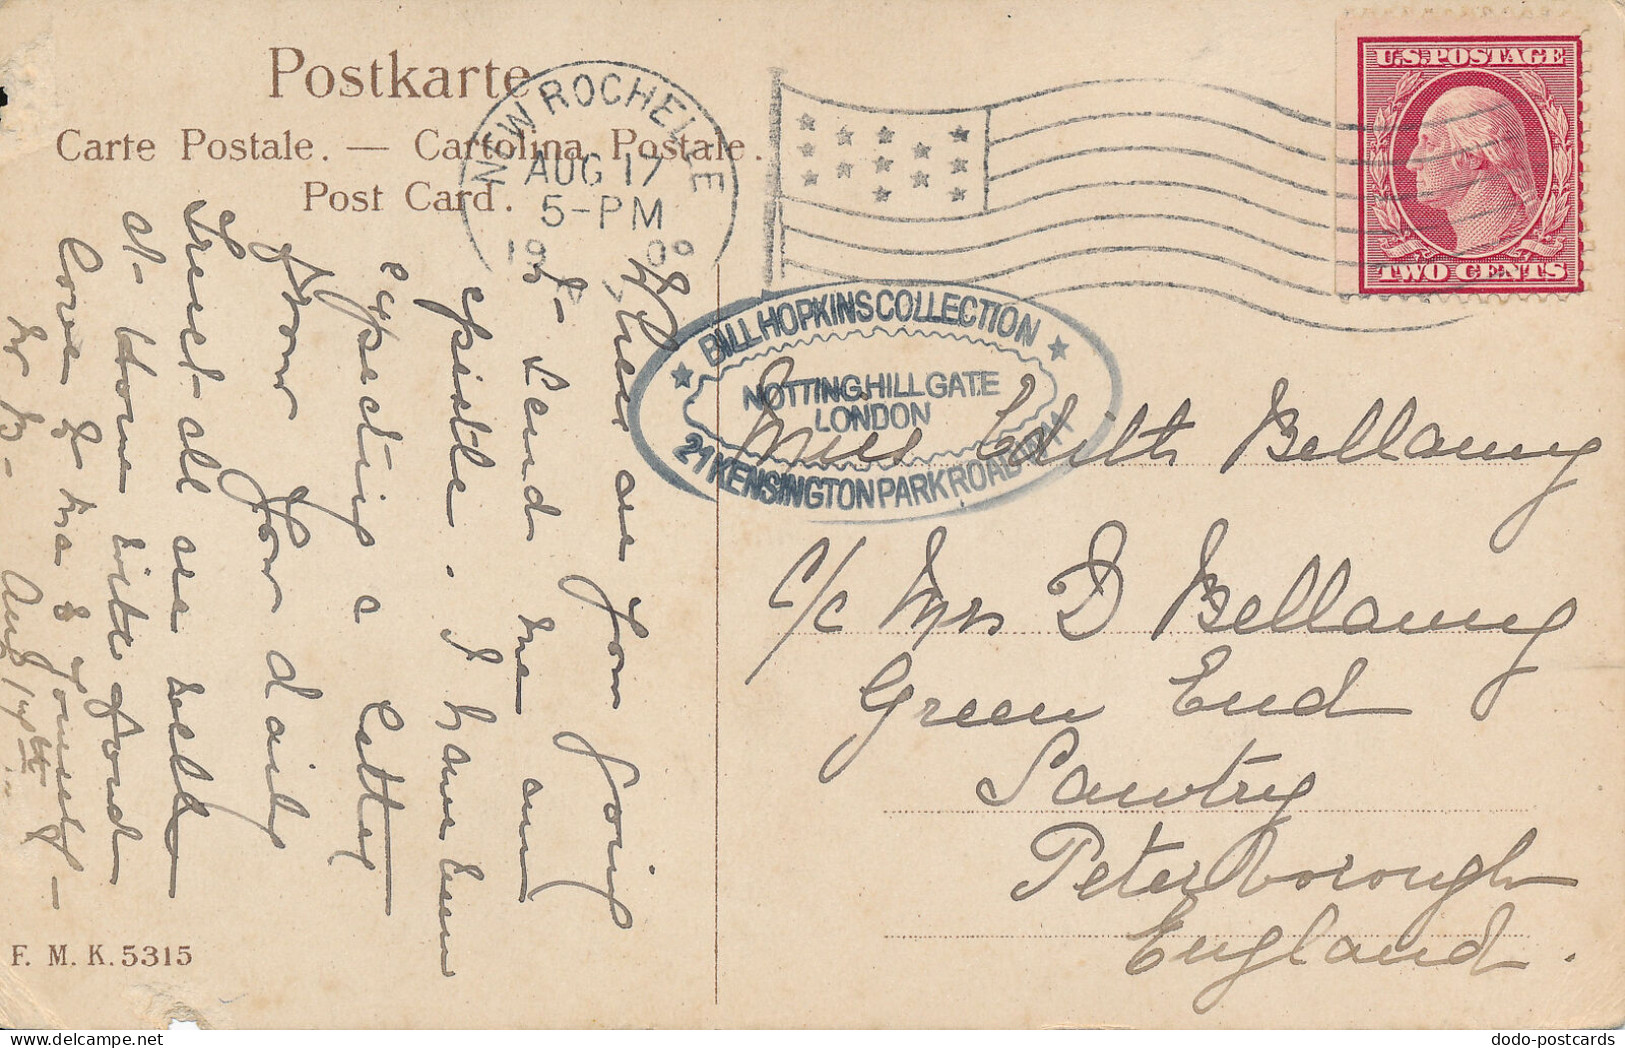 Postkarte
Carte Postale. — Cartolina Postale.
Post Card.
NEW ROCHELLE
AUG 17
5-PM
1909
U.S. POSTAGE
TWO CENTS
★ BILL HOPKINS COLLECTION ★
NOTTING HILL GATE
LONDON
21 KENSINGTON PARK ROAD W11
Miss Edith Bellamy
C/c Mrs D Bellamy
Green End
Sawtry
Peterborough
England.
When are you going
to send me an
epistle. I have been
expecting a letter
from you daily
Trust all are well
at home with fond
love to ma & yourself —
Aug 17th
F. M. K. 5315
dodo-postcards